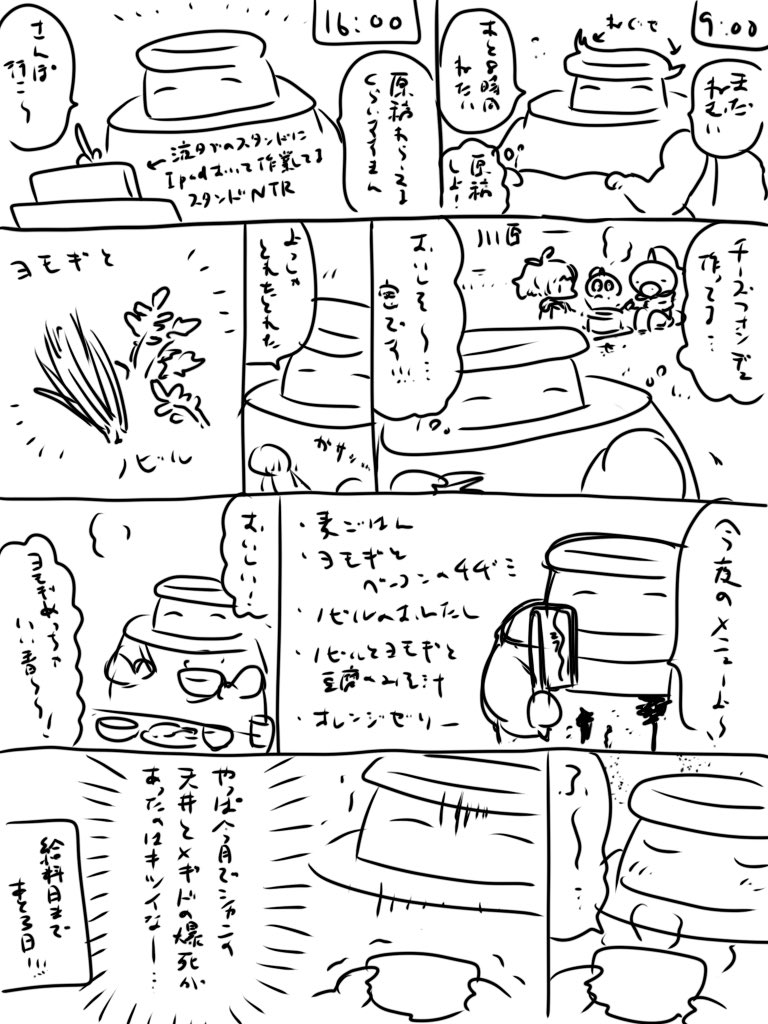 9:00
ねぐせ
まだ
ねむい
あと8時間
ねたい
原稿
しよ!
16:00
原稿わらえる
くらいすすまん
さんぽ
行こ〜
←液タブのスタンドに
Ipadおいて作業してる
スタンドNTR
チーズフォンデュ
作ってる…
川辺
おいしそ〜…
窓です!!!
よっしゃ
とれたとれた
ガサ…
ヨモギと
ノビル
今夜のメニューよ〜
・麦ごはん
・ヨモギと
ベーコンのチヂミ
・ノビルのおひたし
・ノビルとヨモギと
豆腐のみそ汁
・オレンジゼリー
おいしい…
ヨモギめっちゃ
いい香〜〜!
ふ〜…
やっぱ今月でシャニの
天井とメギドの爆死が
あったのはキツイなー…
給料日まで
あと3日!!!